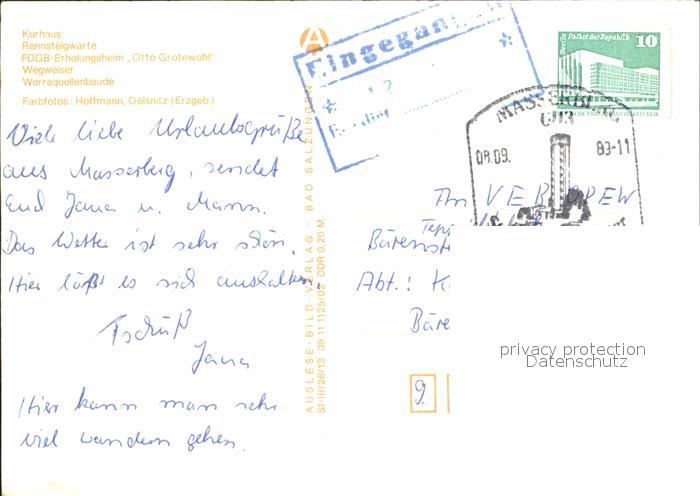 Kurhaus
Rennsteigwarte
FDGB-Erholungsheim „Otto Grotewohl"
Wegweiser
Werraquellenbaude
Farbfotos: Hoffmann, Oelsnitz (Erzgeb.)
Viele liebe Urlaubsgrüße
aus Masserberg, sendet
Euch Jana u. Mann.
Das Wetter ist sehr schön.
Hier läßt es sich aushalten.
Tschüß
Jana
Hier kann man sehr
viel wandern gehen.
A
AUSLESE-BILD-VERLAG · BAD SALZUNGEN
St-III/26/13 09 11 1125/02 DDR 0,20 M
Eingegan
Berlin, Palast der Republik 10
MASSERBERG
6113
08.09. 83-11
An VEB
Bärenst
Abt.: K
Bäre
9
privacy protection
Datenschutz